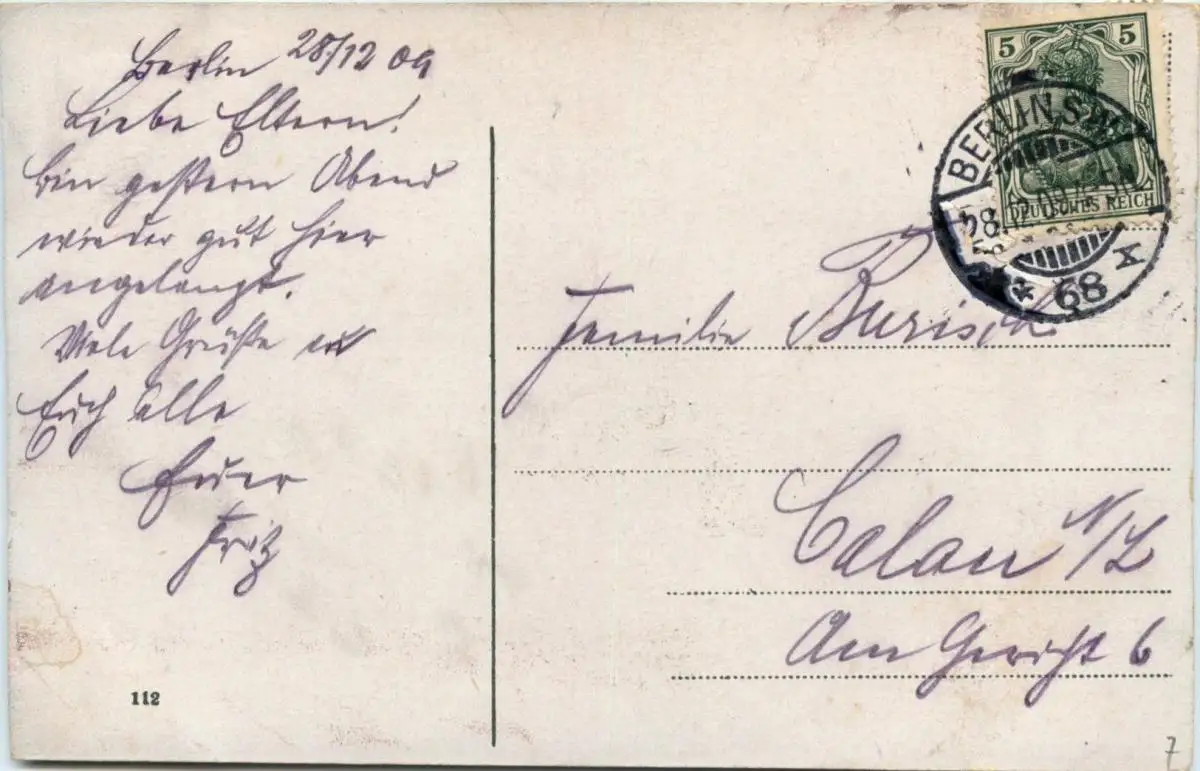 Berlin 28/12 09
Liebe Eltern!
bin gestern Abend
wieder gut hier
angelangt.
Viele Grüße an
Euch alle
Euer
Fritz
112
5 5
DEUTSCHES REICH
BERLIN S.W.
28.12.09
* 68 X
Familie
Calau N/L
Am Gericht 6
7